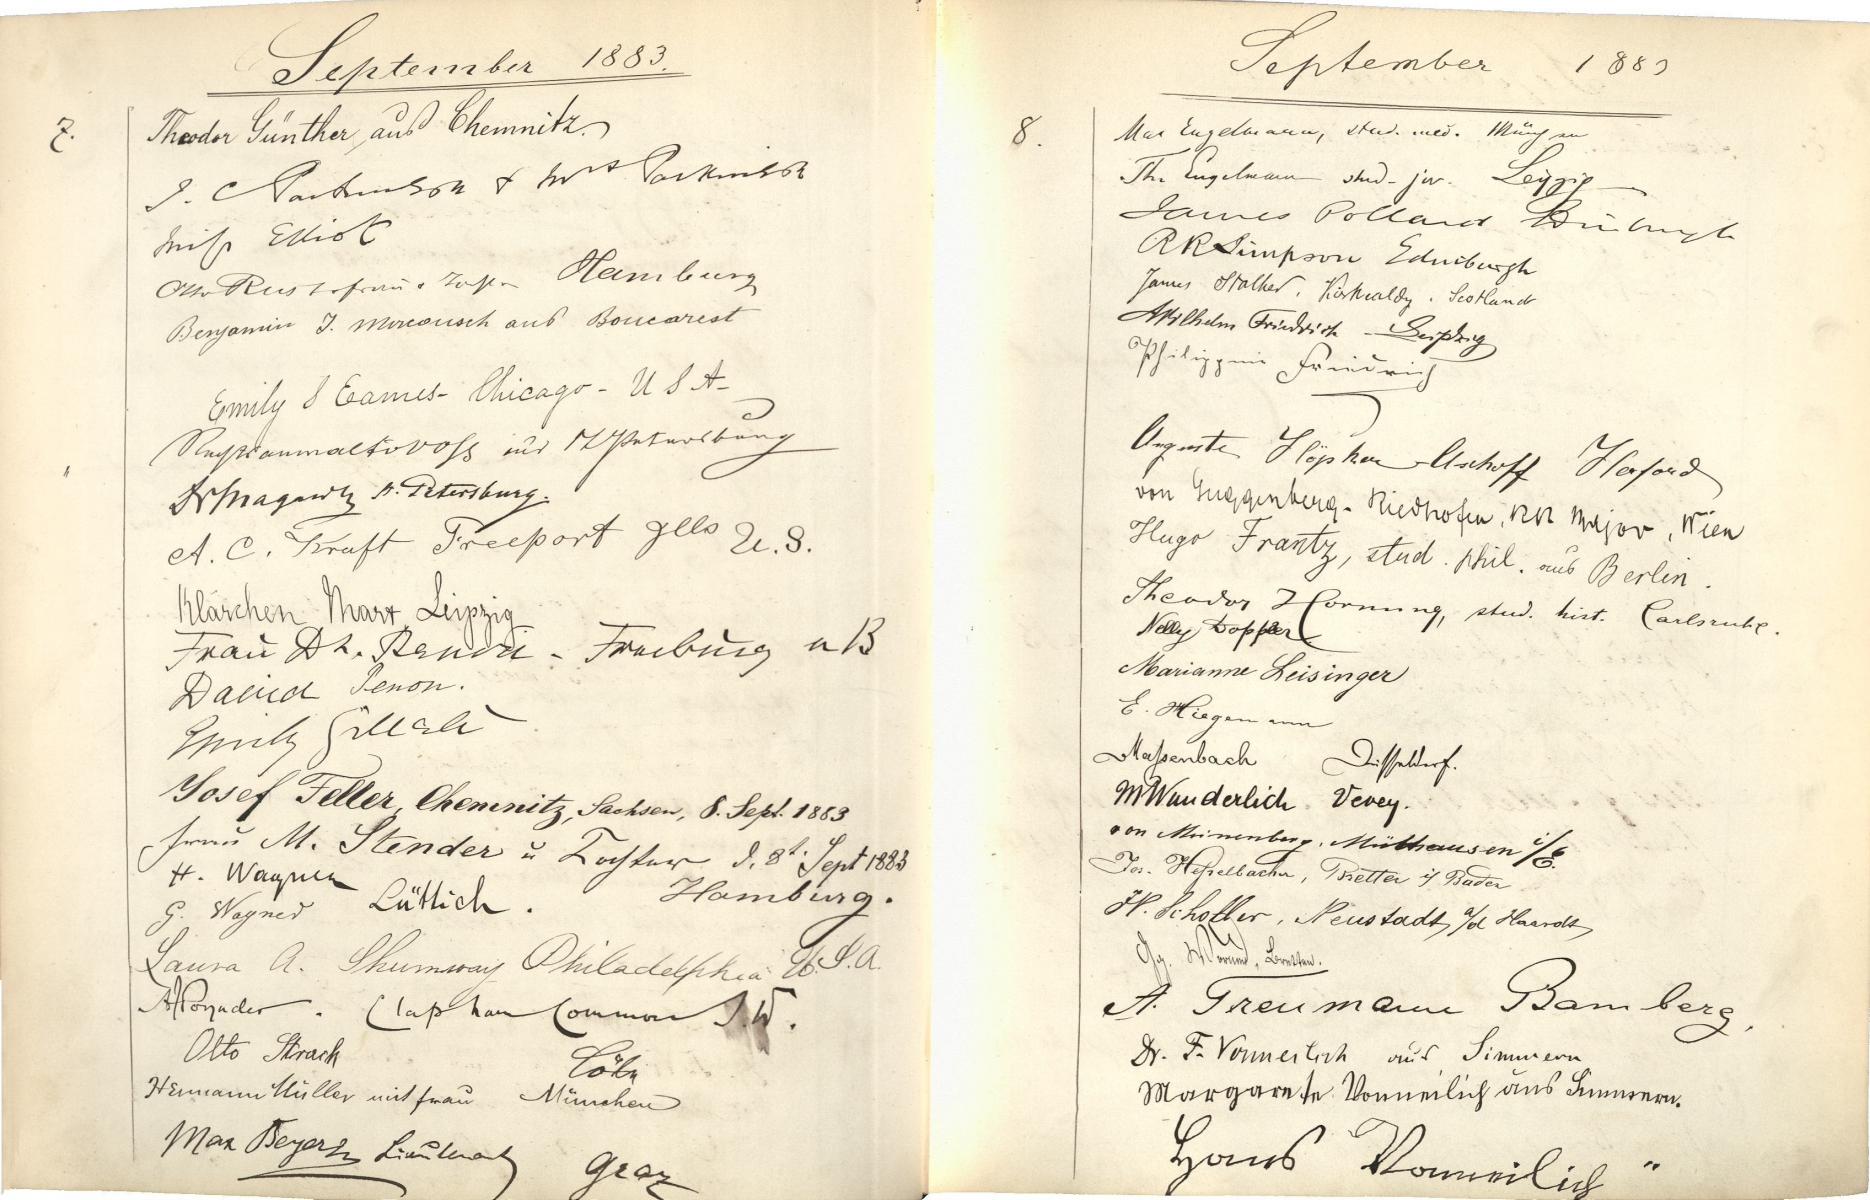 September 1883.
7.
Theodor Günther, aus Chemnitz.
J. C. Parkinson & Mrs Parkinson
Miss Elliot
Otto Hamburg
Benjamin J. aus Boucarest
Emily S Eames - Chicago - U S A -
Voss aus St Petersburg
"
Dr St. Petersburg.
A. C. Kraft Freeport Ills U. S.
Klärchen Marx, Leipzig
Frau Dr. - Freiburg i B
David Penon.
Emily
Josef Feller, Chemnitz, Sachsen, 8. Sept. 1883
Frau M. Stender u Tochter d. 8t. Sept 1883
H. Wagner
Hamburg.
G. Wagner Lüttich.
Laura A. Shumway Philadelphia U.S.A.
Clapham Common S.W.
Otto Strack Cöln
Hermann Müller mit Frau München
Max Beyer Lieutenant Graz
September 1883
8.
Max Engelmann, stud. med. München
Th. Engelmann stud. jur. Leipzig
James Pollard Edinburgh
R R Simpson Edinburgh
James Stalker, Kirkcaldy. Scotland
Wilhelm Friedrich Leipzig
Philippine Friedrich
Auguste Höpker-Aschoff Herford
von Guggenberg-Riedhofen, KK Major, Wien
Hugo Frantz, stud. phil. aus Berlin.
Theodor Hornung, stud. hist. Carlsruhe.
Nelly Doppler
Marianne Leisinger
E. Hiegemann
Massenbach Düsseldorf.
M Wunderlich Vevey.
von Mülhausen i/E.
Jos. Hesselbacher, Bretten i/ Baden
H. Scholler, Neustadt a/d Haardt
Gg. Bretten.
A. Treumann Bamberg,
Dr. F. Vonneilich aus Simmern
Margarete Vonneilich aus Simmern.
Hans Vonneilich "